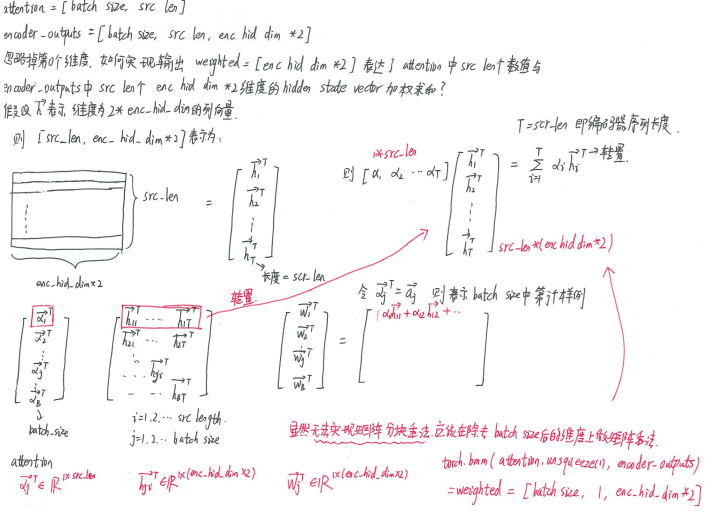 attention = [batch size, src len]
encoder_outputs = [batch size, src len, enc hid dim *2]
忽略掉第0个维度，如何实现输出 weighted = [enc hid dim *2] 表达了 attention 中 src len个数值与
encoder_outputs中 src len个 enc hid dim *2维度的hidden state vector 加权求和？
假设 h 表示维度为2*enc_hid_dim的列向量.
则 [src_len, enc_hid_dim*2] 表示为：
T=scr_len 即编码器序列长度.
src_len
enc_hid_dim*2
=
h₁ᵀ
h₂ᵀ
⋮
h_Tᵀ
长度=scr_len
1*src_len
则 [α₁ α₂ ⋯ α_T]
h₁ᵀ
h₂ᵀ
⋮
h_Tᵀ
= Σ_{i=1}^{T} αᵢ hᵢᵀ → 转置
src_len*(enc hid dim*2)
转置
令 αⱼᵀ = aⱼ 则表示 batch size中第j个样例
α₁ᵀ
α₂ᵀ
⋮
αⱼᵀ
⋮
α_Bᵀ
batch_size
h₁₁ᵀ ⋯ h₁Tᵀ
h₂₁ᵀ ⋯ h₂Tᵀ
⋮
⋯ hⱼᵢᵀ
⋯ h_BTᵀ
i=1,2,⋯ src length.
j=1,2⋯ batch size
w₁ᵀ
w₂ᵀ
wⱼᵀ
w_Bᵀ
=
α₁₁h₁₁ + α₁₂h₁₂ + ⋯
显然无法实现矩阵分块乘法，应该在除去 batch size后的维度上做矩阵乘法.
attention
αⱼᵀ ∈ ℝ^{1×src_len}
hⱼᵢᵀ ∈ ℝ^{1×(enc_hid_dim×2)}
wⱼᵀ ∈ ℝ^{1×(enc_hid_dim×2)}
torch.bmm(attention.unsqueeze(1), encoder_outputs)
=weighted = [batch size, 1, enc_hid_dim*2]